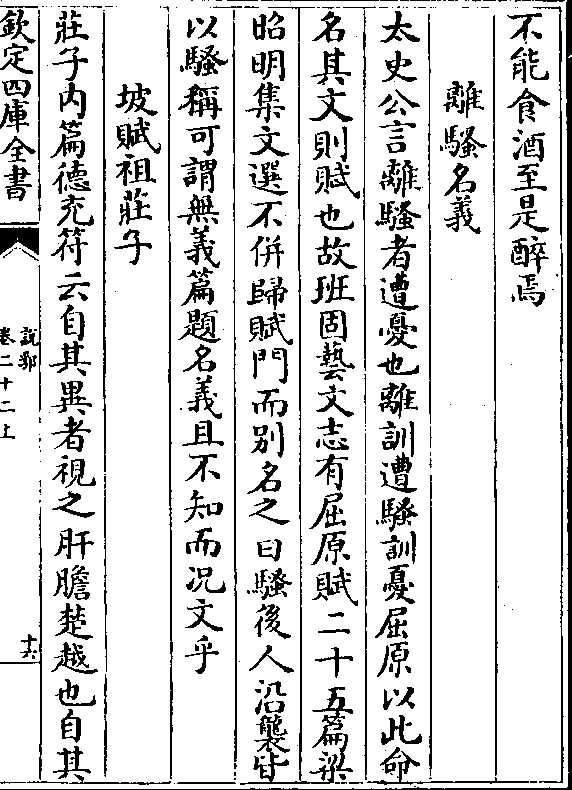 不能食酒至是醉焉
離騷名義
太史公言離騷者遭憂也離訓遭騷訓憂屈原以此命
名其文則賦也故班固藝文志有屈原賦二十五篇梁
昭明集文選不併歸賦門而别名之曰騷後人沿襲皆
以騷稱可謂無義篇題名義且不知而况文乎
坡賦祖莊子
莊子内篇德充符云自其異者視之肝膽楚越也自其
欽定四庫全書
說郛
卷二十二上
十六